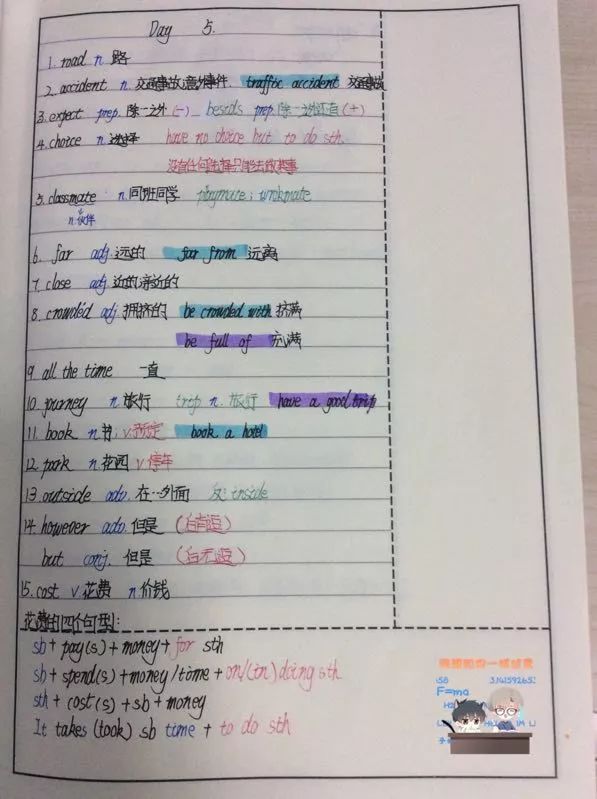 Day 5.
1. road n 路
2. accident n. 交通事故,意外事件. traffic accident 交通事故
3. expect prep. 除…之外 (-) besids prep. 除…之外还有 (+)
4. choice n. 选择 have no choice but to do sth.
没有任何选择只能去做某事
5. classmate n. 同班同学 playmate; workmate
n. 伙伴
6. far adj. 远的 far from 远离
7. close adj. 近的,亲近的
8. crowded adj 拥挤的 be crowded with 挤满
be full of 充满
9 all the time 一直
10. journey n. 旅行 trip n. 旅行 have a good trip
11. book n 书; v. 预定 book a hotel
12. park n. 花园 v 停车
13. outside adv. 在…外面 反: inside
14. however adv. 但是 (后有逗)
but conj. 但是 (后无逗)
15. cost v 花费 n 价钱
花费的四个句型:
sb + pay(s) + money + for sth
sb + spend(s) + money / time + on/(in) doing sth
sth + cost(s) + sb + money
It takes (took) sb time + to do sth
3.14159265
F=ma